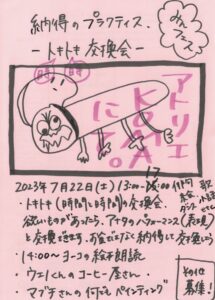 納得のプラクティス.
みんフェス
ートキトキ交換会ー
時 時
アトリエ
にて。
2023年7月22日(土) 13:00-
・トキトキ(時間と時間)の交換会.
欲いものがあったら、アナタのパフォーマンス(表現)
と交換できます。お金だけでなく納得して交換しよう
・14:00〜ヨーコの絵本朗読
・ウエノくんのコーヒー屋さん.
・マブチさんの何でもペインティング
その他
募集!